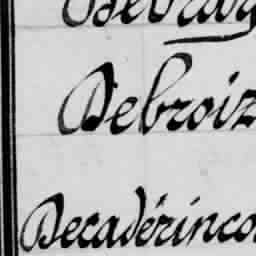 Debroiz
Decadérinco